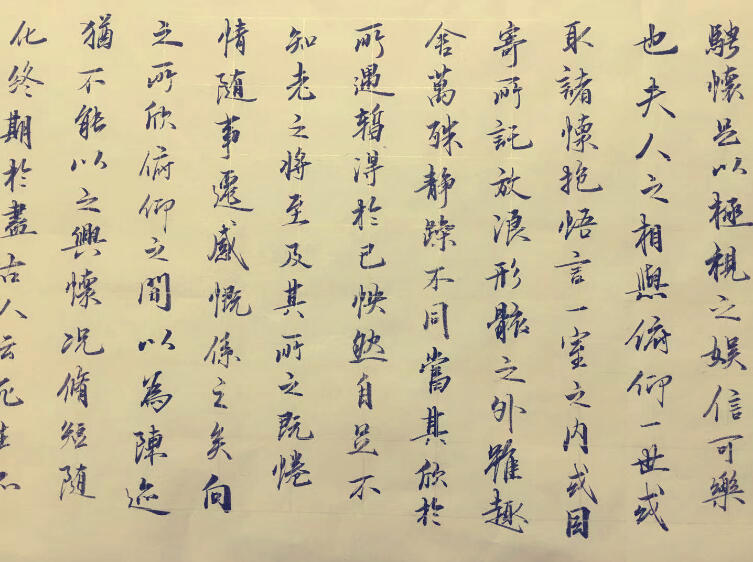 騁懷足以極視之娛信可樂
也夫人之相與俯仰一世或
取諸懷抱悟言一室之內或因
寄所託放浪形骸之外雖趣
舍萬殊静躁不同當其欣於
所遇暫得於己怏然自足不
知老之將至及其所之既惓
情隨事遷感慨係之矣向
之所欣俯仰之間以為陳迹
猶不能以之興懷況脩短隨
化終期於盡古人云死生亦